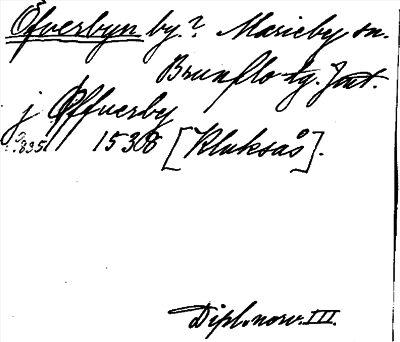 Öfverbyn by? Marieby sn.
Brunflo tg. Jmt.
j Øffuerby
S. 835. 1538 [Kluksås].
Dipl. norv. III.